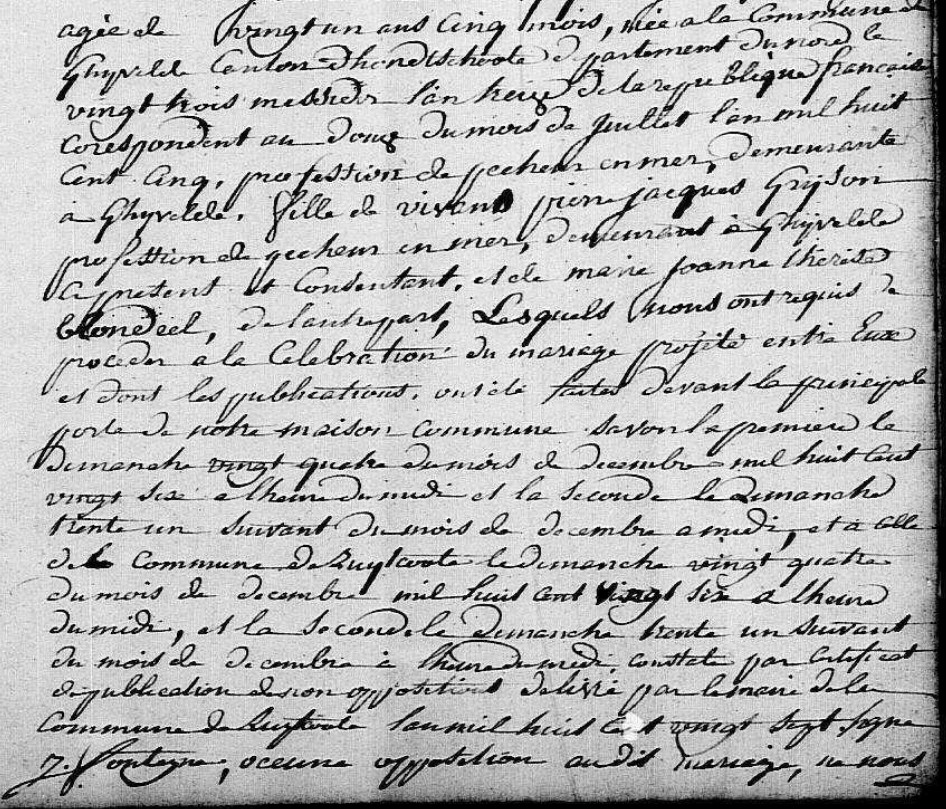 agée de vingt un ans cinq mois, née a la Commune de
Ghyvelde Canton dhondtschoote departement du nord le
vingt trois messidor l'an treize de la republique francaise
corespondent au douze du mois de Juillet l'an mil huit
Cent Cinq, profession de pecheur en mer, demeurante
à Ghyvelde. fille de vivant pierre jacques Gryson
profession de pecheur en mer, demeurant à Ghyvelde
Ci present et Consentant, et de marie joanne therese
blondeel, de lautre part, Lesquels nous ont requis de
proceder a la Celebration du mariage projété entre Eux
et dont les publications, ont été faites devant la principale
porte de notre maison commune savoir la premiere le
dimanche vingt quatre du mois de decembre mil huit Cent
vingt six a lheure du midi et la seconde le dimanche
trente un suivant du mois de decembre a midi, et à celle
de la Commune de Zuytcoote le dimanche vingt quatre
du mois de decembre mil huit cent vingt six a lheure
du midi, et la seconde le dimanche trente un suivant
du mois de decembre à lheure de midi, constate par Certificat
de publication de non opposition délivré par le maire de la
Commune de Zuytcoote lan mil huit Cent vingt sept, signé
fontagne, oceune opposition au dit mariage, ne nous